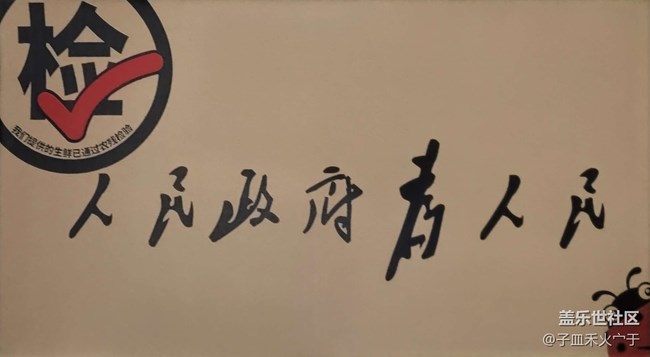 检
我们提供的生鲜已通过农残检验
人民政府為人民
盖乐世社区
@子皿禾火宀于